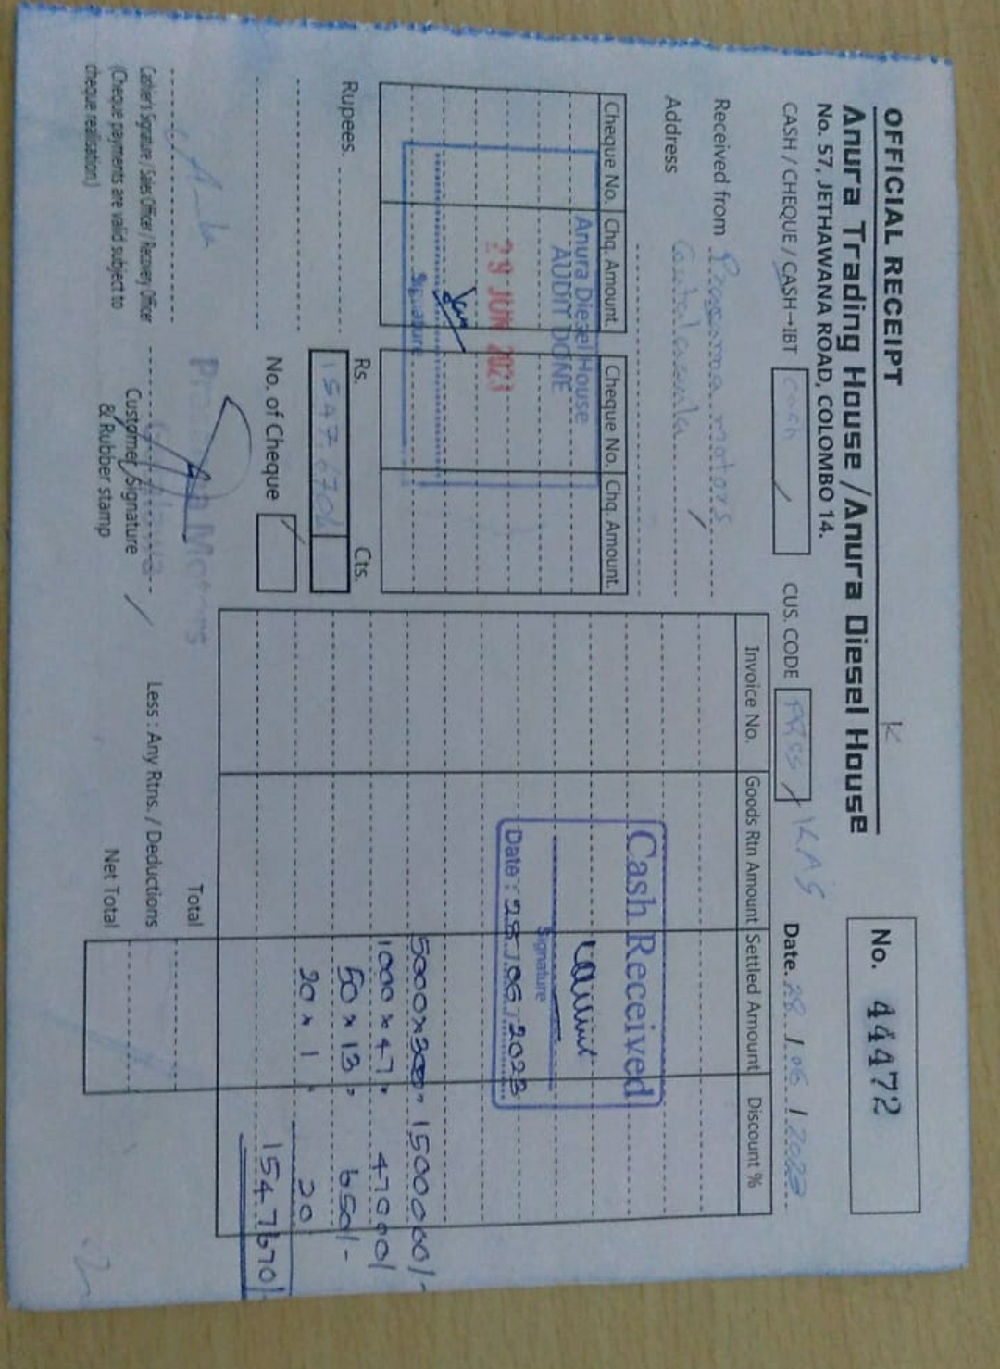 OFFICIAL RECEIPT
K
Anura Trading House / Anura Diesel House
No. 57, JETHAWANA ROAD, COLOMBO 14.
No. 44472
CASH / CHEQUE / CASH→IBT cash
CUS. CODE / KAS
Date. 28 / 06 / 2023
Received from motors
Address
Cheque No. Chq. Amount. Cheque No. Chq. Amount.
Anura Diesel House
AUDIT DONE
29 JUN 2023
Signature
Rupees.
Rs. Cts.
1547,670/
No. of Cheque
Invoice No. Goods Rtn Amount Settled Amount Discount %
Cash Received
Signature
Date : 28.06.2023
5000x300, 1500000/-
1000 x 47, 47000/
50 x 13, 650/-
20 x 1, 20
1547670/-
Total
Less : Any Rtns. / Deductions
Net Total
Motors
Cashier's Signature / Sales Officer / Recovery Officer
(Cheque payments are valid subject to
cheque realisation.)
Customer Signature
& Rubber stamp